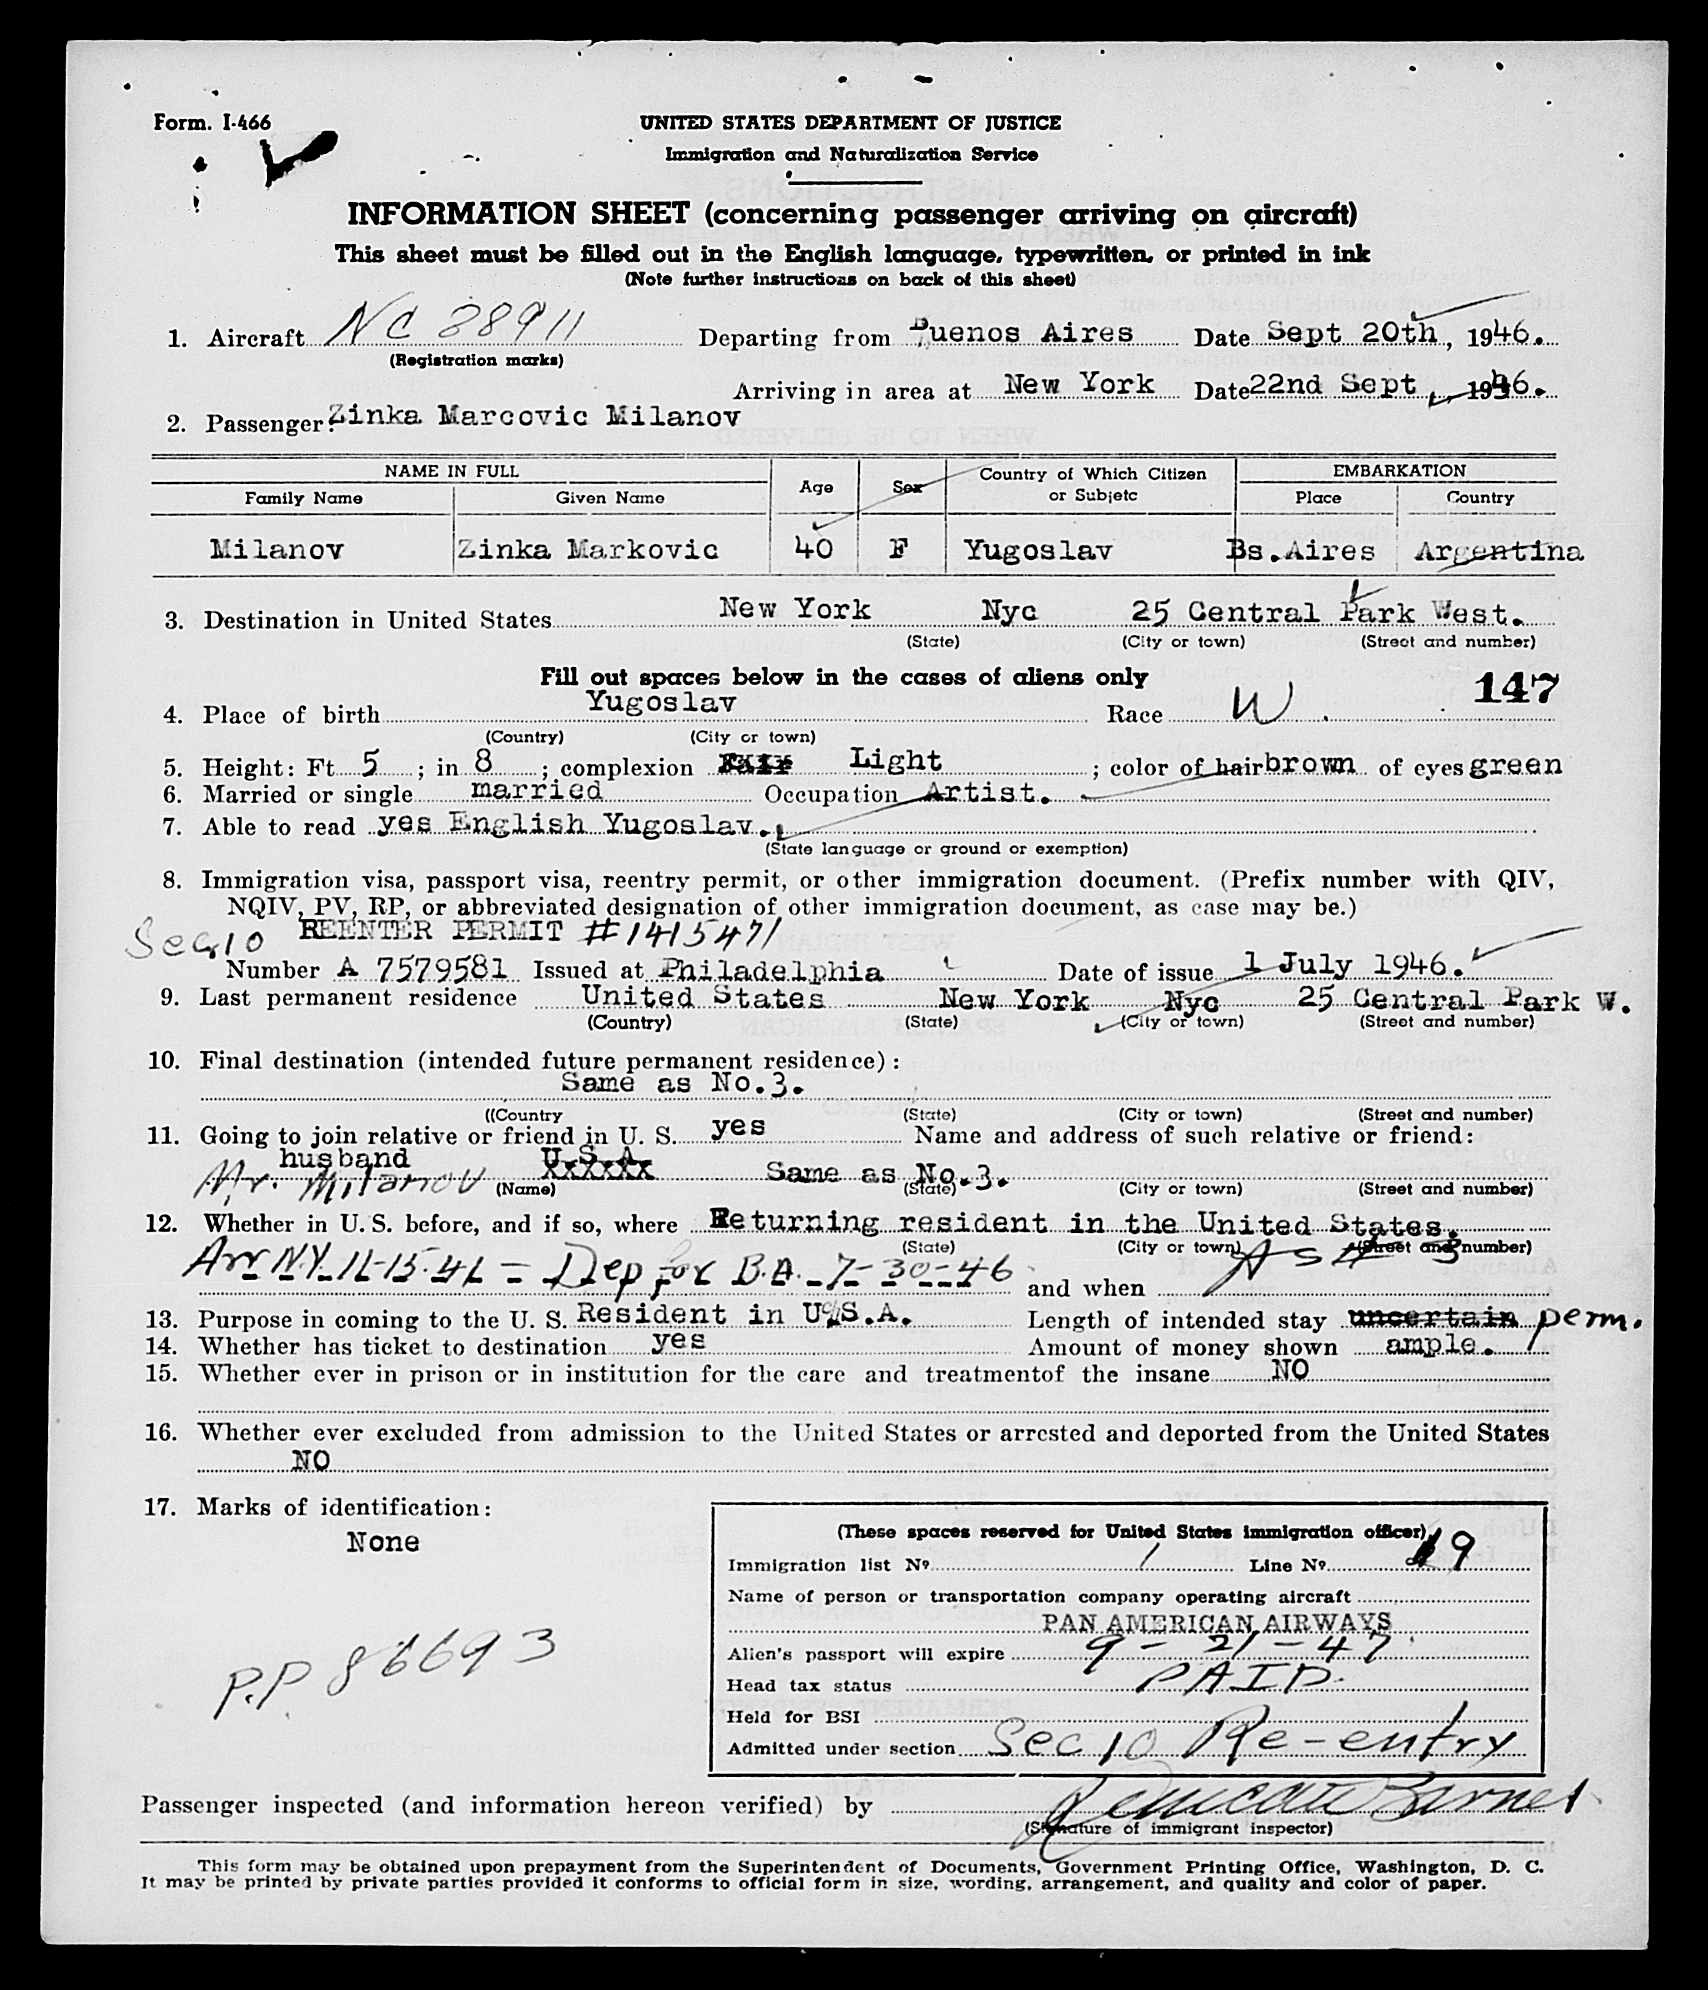 Form. I-466
UNITED STATES DEPARTMENT OF JUSTICE
Immigration and Naturalization Service
INFORMATION SHEET (concerning passenger arriving on aircraft)
This sheet must be filled out in the English language, typewritten, or printed in ink
(Note further instructions on back of this sheet)
1. Aircraft NC 88911 Departing from Buenos Aires Date Sept 20th, 1946.
(Registration marks)
Arriving in area at New York Date 22nd Sept, 1946.
2. Passenger: Zinka Marcovic Milanov
NAME IN FULL Age Sex Country of Which Citizen or Subjetc EMBARKATION
Family Name Given Name Place Country
Milanov Zinka Markovic 40 F Yugoslav Bs.Aires Argentina
3. Destination in United States New York Nyc 25 Central Park West.
(State) (City or town) (Street and number)
Fill out spaces below in the cases of aliens only
147
4. Place of birth Yugoslav Race W
(Country) (City or town)
5. Height: Ft 5 ; in 8 ; complexion Fair Light ; color of hair brown of eyes green
6. Married or single married Occupation Artist.
7. Able to read yes English Yugoslav.
(State language or ground or exemption)
8. Immigration visa, passport visa, reentry permit, or other immigration document. (Prefix number with QIV,
NQIV, PV, RP, or abbreviated designation of other immigration document, as case may be.)
Sec 10 REENTER PERMIT #1415471
Number A 7579581 Issued at Philadelphia Date of issue 1 July 1946.
9. Last permanent residence United States New York Nyc 25 Central Park W.
(Country) (State) (City or town) (Street and number)
10. Final destination (intended future permanent residence):
Same as No.3.
((Country (State) (City or town) (Street and number)
11. Going to join relative or friend in U. S. yes Name and address of such relative or friend:
husband U.S.A.
Mr. Milanov xxxxxx Same as No.3.
(Name) (State) (City or town) (Street and number)
12. Whether in U. S. before, and if so, where Returning resident in the United States.
(State) (City or town) (Street and number)
Arr N.Y. 11-15-41 - Dep for B.A. 7-30-46 and when As # 3
13. Purpose in coming to the U. S. Resident in U.S.A. Length of intended stay uncertain perm.
14. Whether has ticket to destination yes Amount of money shown ample.
15. Whether ever in prison or in institution for the care and treatmentof the insane NO
16. Whether ever excluded from admission to the United States or arrested and deported from the United States
NO
17. Marks of identification:
None
P.P 86693
(These spaces reserved for United States immigration officer)
Immigration list Nº 1 Line Nº 19
Name of person or transportation company operating aircraft
PAN AMERICAN AIRWAYS
Alien's passport will expire 9-21-47
Head tax status PAID.
Held for BSI
Admitted under section Sec 10 Re-entry
Passenger inspected (and information hereon verified) by
(Signature of immigrant inspector)
This form may be obtained upon prepayment from the Superintendent of Documents, Government Printing Office, Washington, D. C.
It may be printed by private parties provided it conforms to official form in size, wording, arrangement, and quality and color of paper.